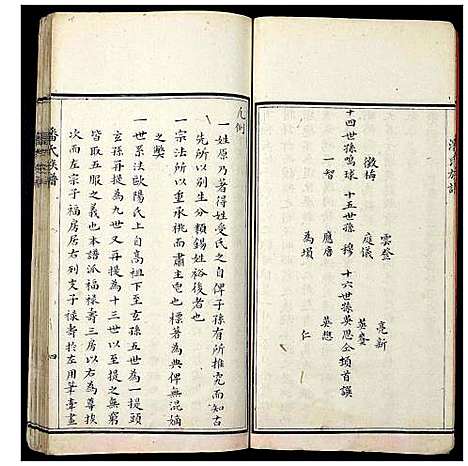 潘氏族譜
徵梅 雲登 亮新
庭儀 英慶
十四世孫鳴球 十五世孫 穆 十六世孫英恩仝頓首譔
一智 應唐 英想
為塤 仁
凡例
一姓原乃著得姓受氏之自俾子孫有所推究而知古
先所以別生分類錫姓裕後者也
一宗法所以重承祧而肅主鬯也標著為典俾無混嫡
之獘
一世系法歐陽氏上自高祖下至玄孫五世為一提頭
玄孫再提為九世又再提為十三世以至提之無窮
皆取五服之義也本譜派福祿壽三房以右為尊挨
次而左宗子福房居右列支子祿壽於左用筆牽畫
潘氏族譜
四